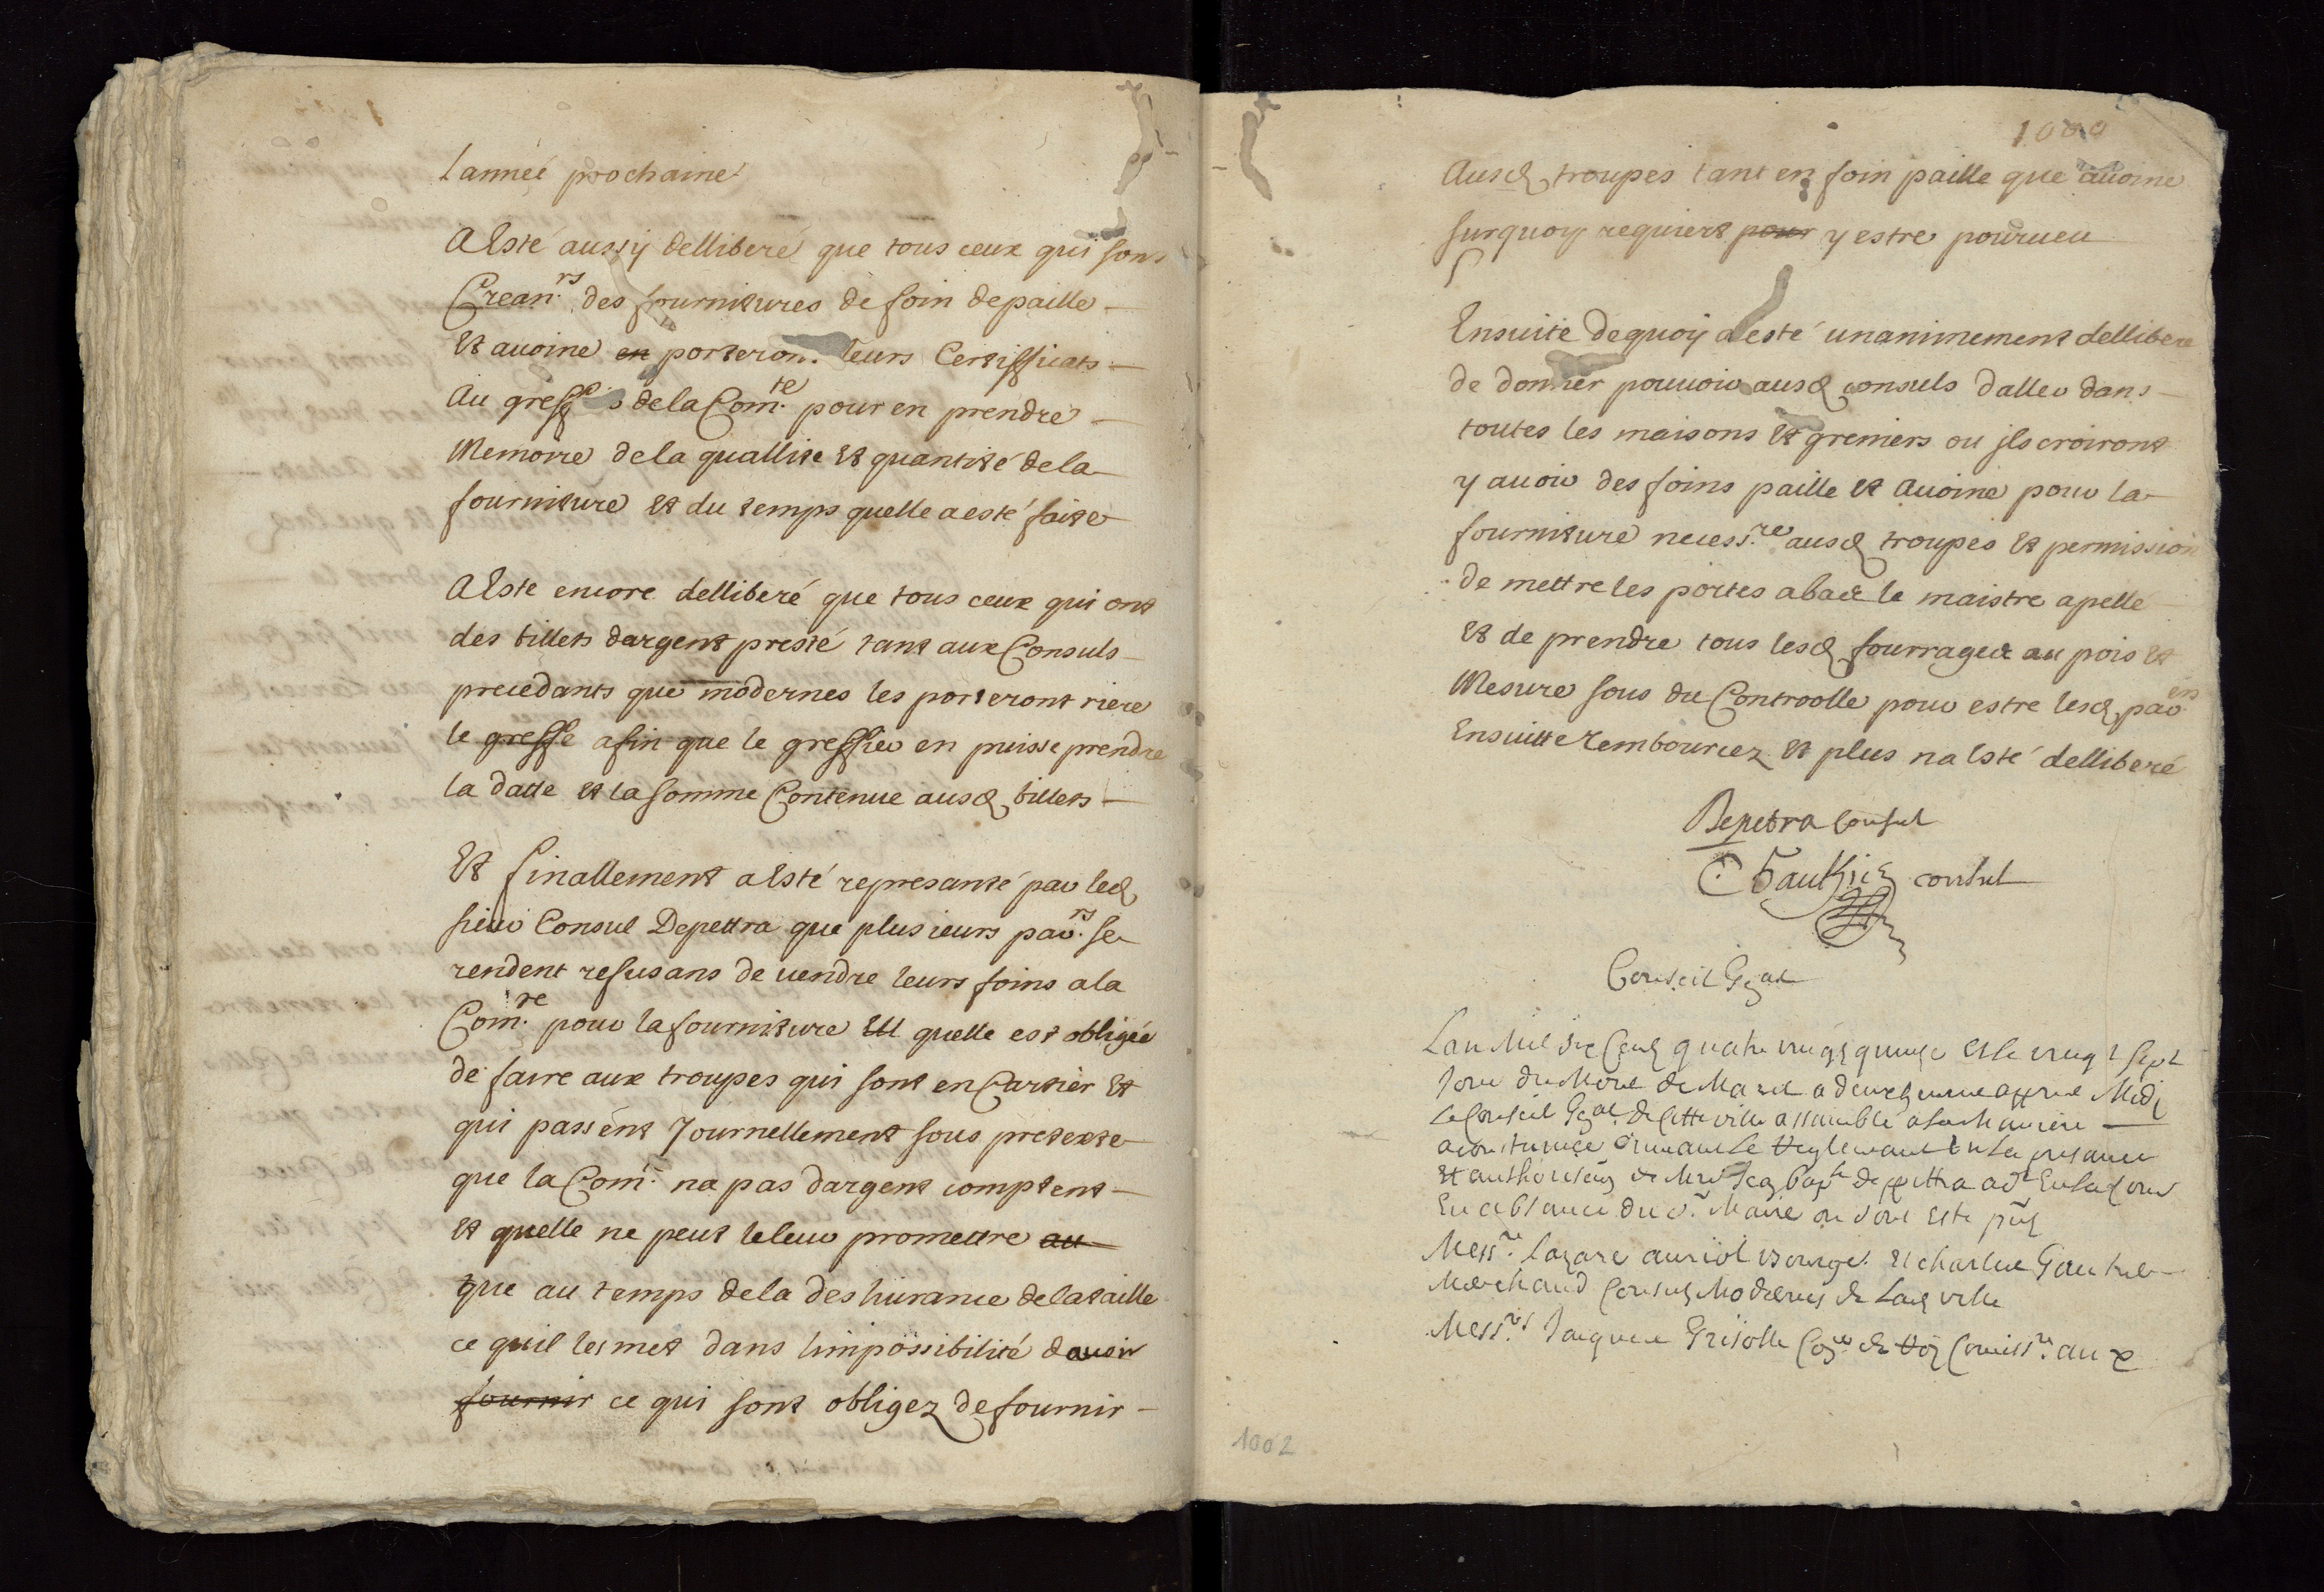 lannéé prochaine
A Esté aussy delliberé que tous ceux qui sont
Crean.rs des fournitures de foin de paille
Et avoine en porteron. leurs Certifficats
Au greffe de la Com.te pour en prendre
Memoire de la quallite Et quantité de la
fourniture Et du temps quelle a esté faite
A Este encore delliberé que tous ceux qui ont
des billets dargent presté tant aux Consuls
precedants que modernes les porteront riere
le greffe afin que le greffier en puisse prendre
la datte Et la somme Contenue ausd billets
Et finallement a Esté represanté par led
sieur Consul Depettra que plusieurs par.rs se
rendent refusans de vendre leurs foins a la
Com.te pour la fourniture quelle est obligée
de faire aux troupes qui sont en Cartier Et
qui passent Journellement sous pretexte
que la Com.te na pas dargent comptent
Et quelle ne peut leleur promettre au
que au temps de la des hurance de la taille
ce quil les met dans limpossibilité davoir
fournir ce qui sont obligez de fournir
1000
Ausd troupes tant en foin paille que avoine
surquoy requiert pour y estre pourveu
Ensuite dequoy a esté unanimement dellibere
de donner pouvoir ausd consuls daller dans
toutes les maisons Et greniers ou jls croiront
y avoir des foins paille Et avoine pour la
fourniture necess.re ausd troupes Et permission
de mettre les portes abas le maistre apelle
Et de prendre tous lesd fourrages au pois Et
Mesure sous du Controolle pour estre lesd par.ers
Ensuitte rembourcez Et plus na Esté delliberé
Depetra consul
C Gauthier consul
Conseil Gñal
Lan Mil six Cens quatre vingt quinze et le vingt sept
Jour du Mois de Mars a deux heures appres Midi
Le Conseil Gñal de Cette ville assamblé a la Maniere
acoustumée suivant Le Reglemant En la presance
Et authorisaõn de Mre Jean Bap.te depettra ad.t En la Cour
En abſance du s.r Maire ou sont Esté pñs
Mess.rs lazare auriol bourge. Et charles Gautier
Marchand Consuls Modernes de Lad ville
Mess.rs Jacques Grisolle Con.er du Roy Comiss.re aux
1002